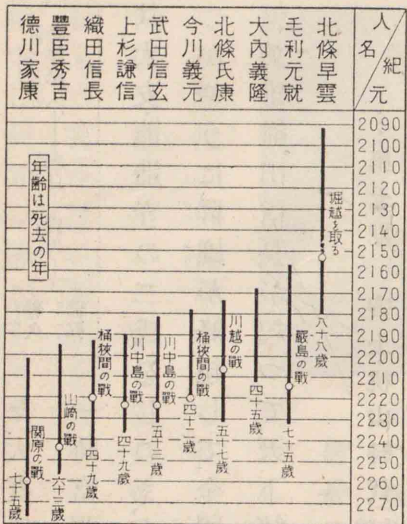 人名
紀元
北條早雲
毛利元就
大內義隆
北條氏康
今川義元
武田信玄
上杉謙信
織田信長
豐臣秀吉
德川家康
2090
2100
2110
2120
2130
2140
2150
2160
2170
2180
2190
2200
2210
2220
2230
2240
2250
2260
2270
堀越を取る
八十八歲
嚴島の戰
七十五歲
四十五歲
川越の戰
五十七歲
桶狹間の戰
四十二歲
川中島の戰
五十三歲
川中島の戰
四十九歲
桶狹間の戰
四十九歲
山崎の戰
六十三歲
關原の戰
七十五歲
年齡は死去の年